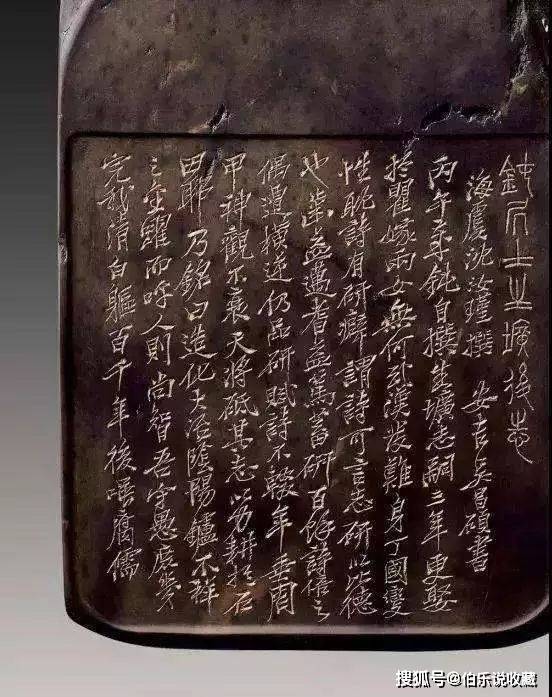 鈍居士生壙後志
海虞沈汝瑾撰 安吉吳昌碩書
丙午年鈍自撰生壙志嗣三年更娶
於瞿嫁兩女無何武漢發難身丁國變
性眈詩有研癖謂詩可言志研以比德
也歲益邁耆益篤蓄研百餘詩倍之
偶遭橫逆仍品研賦詩不輟年垂周
甲神觀不衰天將砥其志以勞耕於石
田耶乃銘曰造化大冶陰陽鑪不祥
之金躍而呼人則尚智吾守愚庶幾
完我清白軀百千年後 腐儒
搜狐号@伯乐说收藏